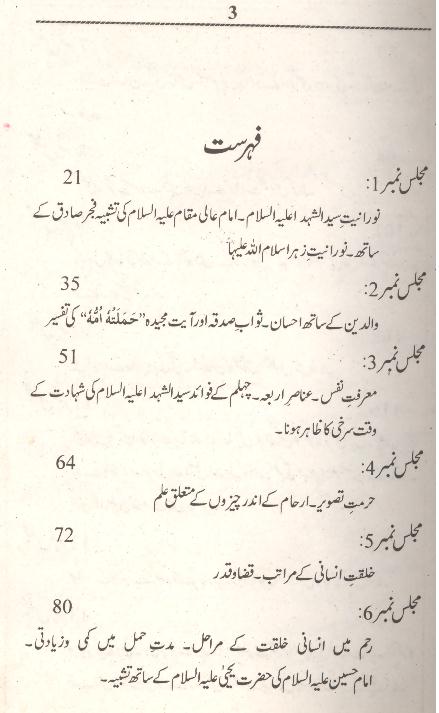 3
فہرست
مجلس نمبر 1: 21
نورانیتِ سید الشہداء علیہ السلام۔ امام عالی مقام علیہ السلام کی تشبیہ فجر صادق کے
ساتھ۔ نورانیتِ زہرا سلام اللہ علیہا
مجلس نمبر 2: 35
والدین کے ساتھ احسان۔ ثوابِ صدقہ اور آیت مجیدہ "حَمَلَتْهُ اُمُّهٗ" کی تفسیر
مجلس نمبر 3: 51
معرفتِ نفس۔ عناصر اربعہ۔ چہلم کے فوائد سید الشہداء علیہ السلام کی شہادت کے
وقت سرخی کا ظاہر ہونا۔
مجلس نمبر 4: 64
حرمتِ تصویر۔ ارحام کے اندر چیزوں کے متعلق علم
مجلس نمبر 5: 72
خلقتِ انسانی کے مراتب۔ قضا و قدر
مجلس نمبر 6: 80
رحم میں انسانی خلقت کے مراحل۔ مدتِ حمل میں کمی و زیادتی۔
امام حسین علیہ السلام کی حضرت یحییٰ علیہ السلام کے ساتھ تشبیہ۔